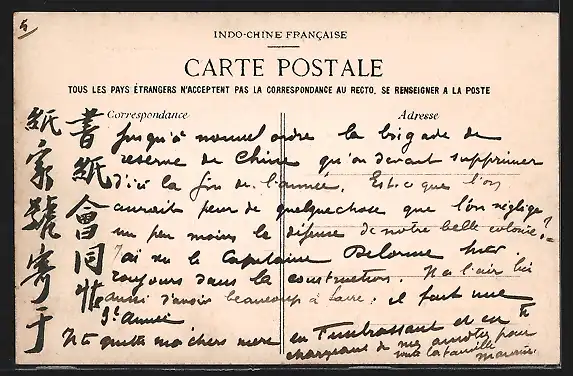 5
INDO-CHINE FRANÇAISE
CARTE POSTALE
TOUS LES PAYS ÉTRANGERS N'ACCEPTENT PAS LA CORRESPONDANCE AU RECTO. SE RENSEIGNER A LA POSTE
Correspondance
Adresse
Jusqu'à nouvel ordre la brigade de
reserve de Chine qu'on devait supprimer
d'ici la fin de l'année. Est-ce que l'on
aurait peur de quelque chose que l'on néglige
un peu moins la défense de notre belle colonie ?
J'ai vu le Capitaine Delorme hier.
toujours dans la construction. Il a l'air lui
aussi d'avoir beaucoup à faire; il fait une
3e année
Je te quitte ma chère mère en t'embrassant et en te
chargeant de mes amitiés pour
toute la famille
書紙會同
紙家號寄于